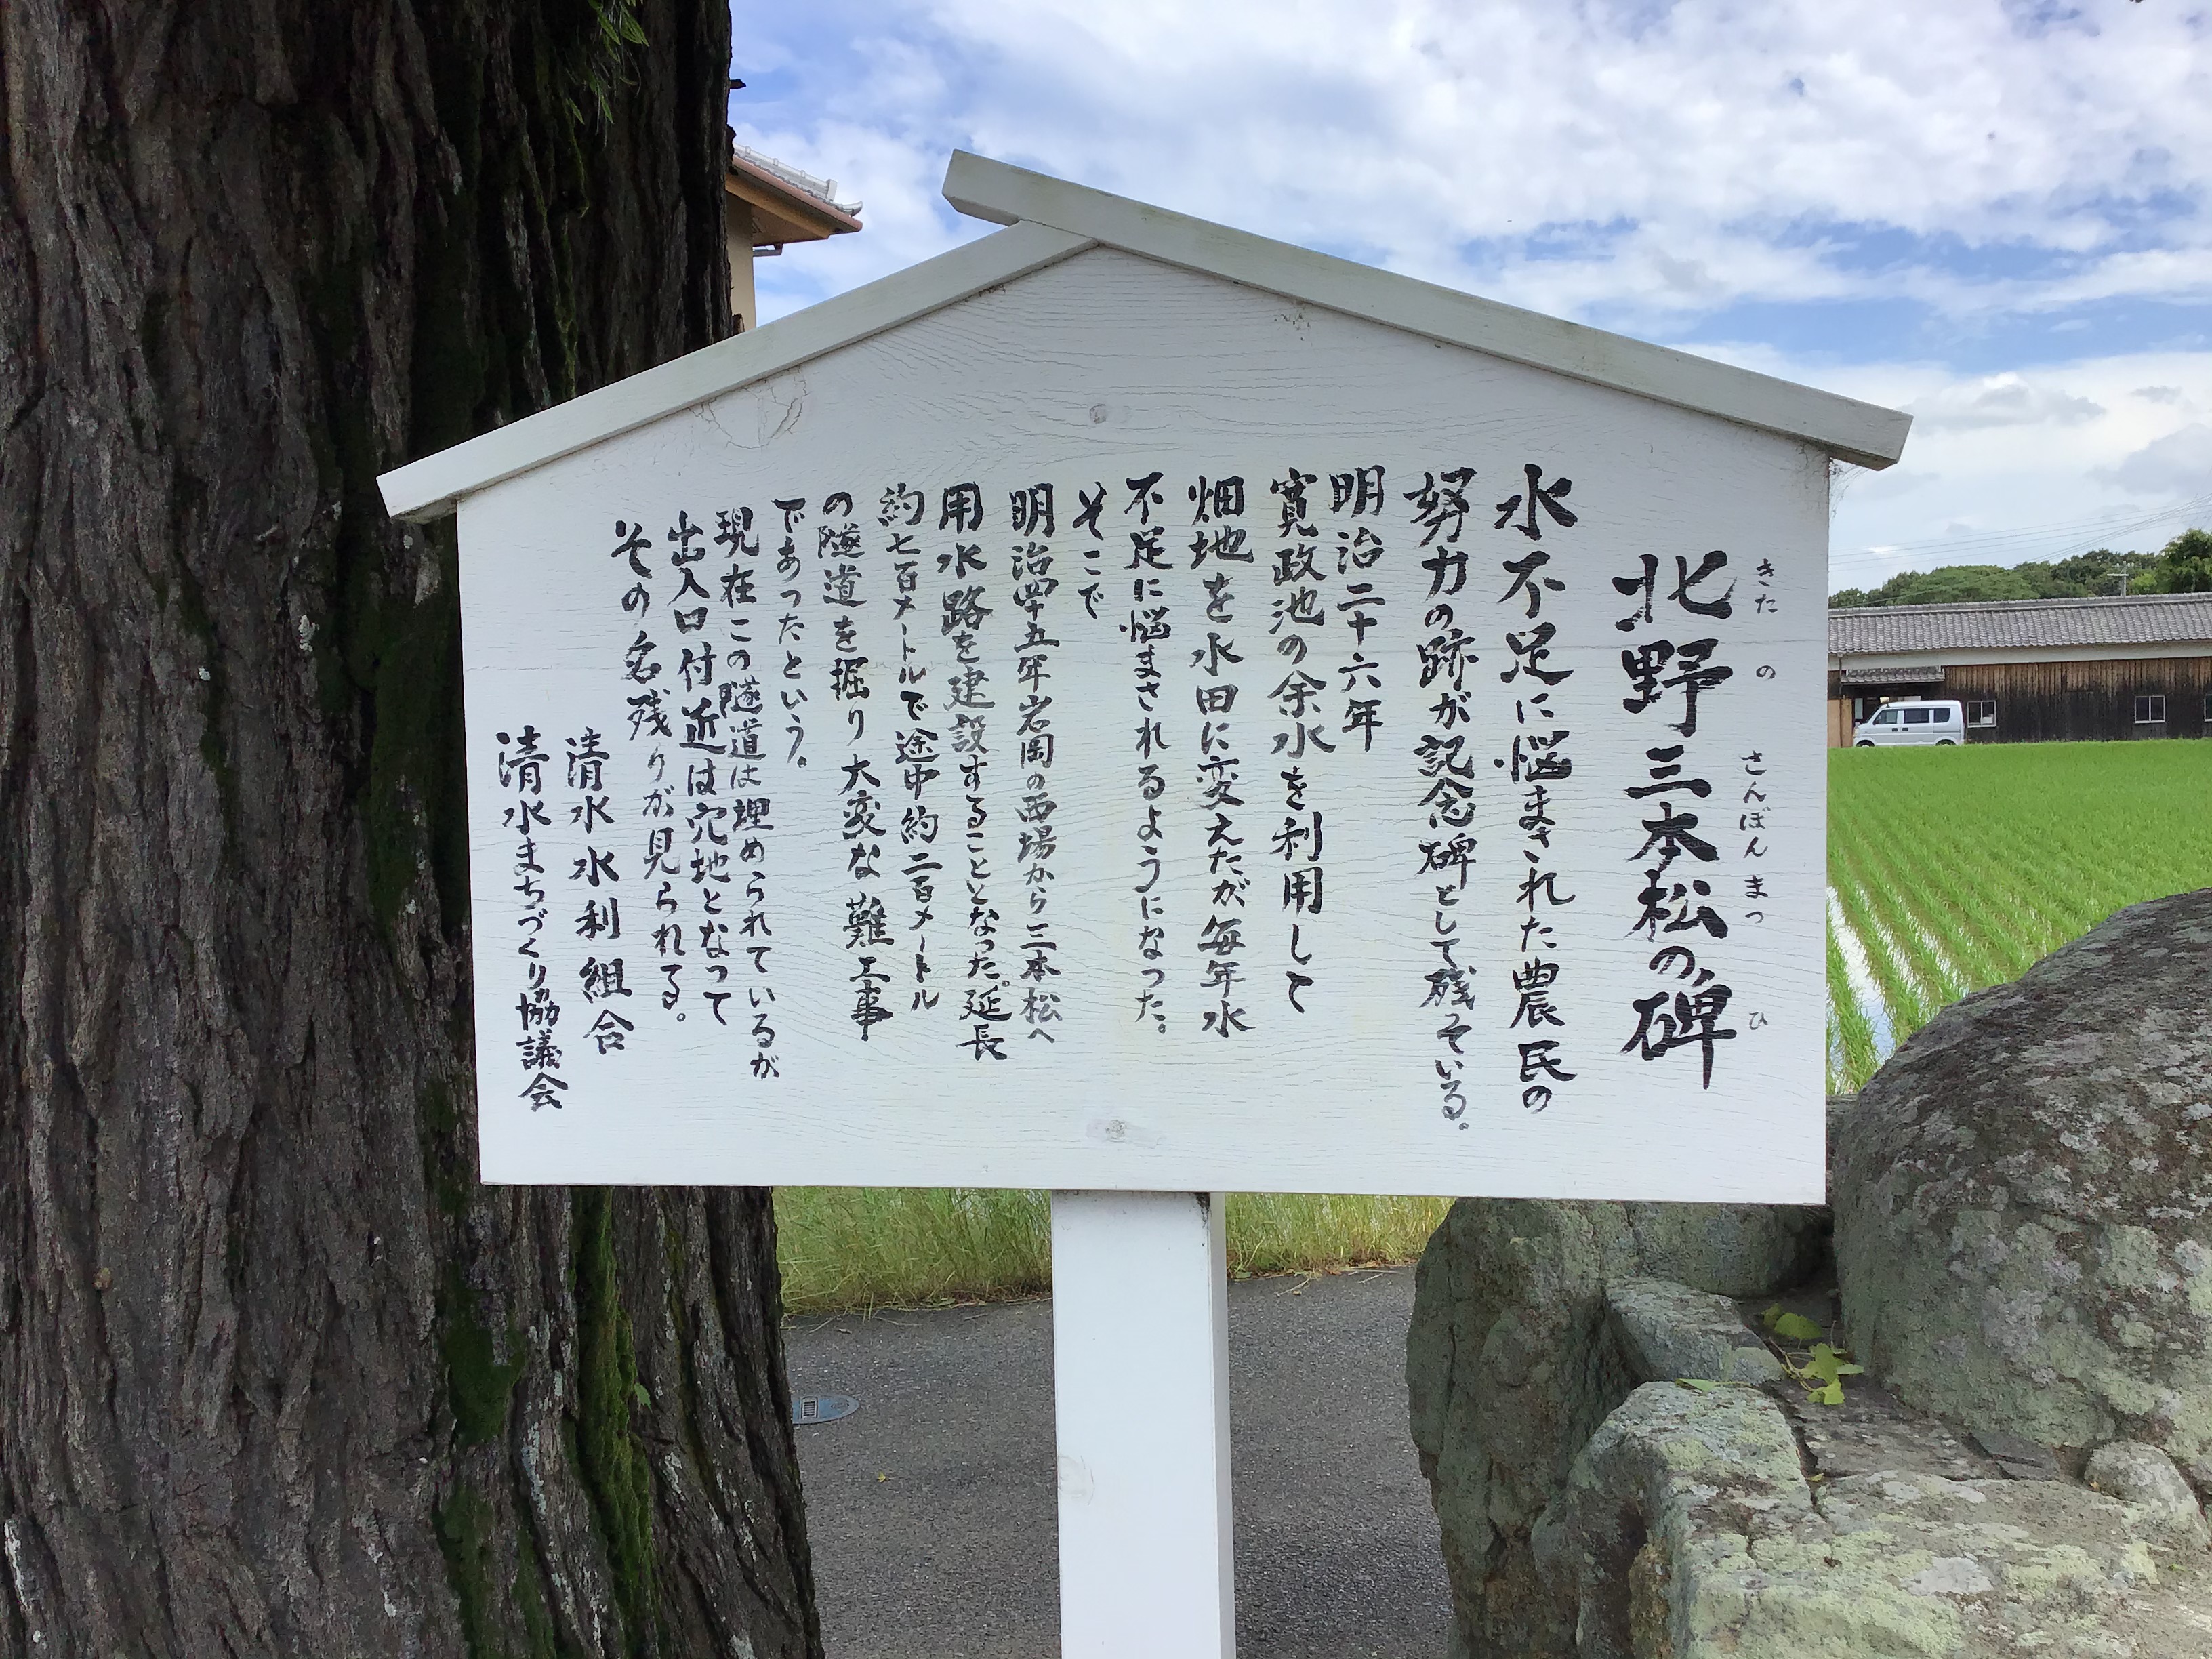 北野三本松の碑
きた の さんぼん まつ ひ
水不足に悩まされた農民の
努力の跡が記念碑として残っている。
明治二十六年
寛政池の余水を利用して
畑地を水田に変えたが毎年水
不足に悩まされるようになった。
そこで
明治四十五年岩岡の西場から三本松へ
用水路を建設することとなった。延長
約七百メートルで途中約二百メートル
の隧道を掘り大変な難工事
であったという。
現在この隧道は埋められているが
出入口付近は穴地となって
その名残りが見られる。
清水水利組合
清水まちづくり協議会